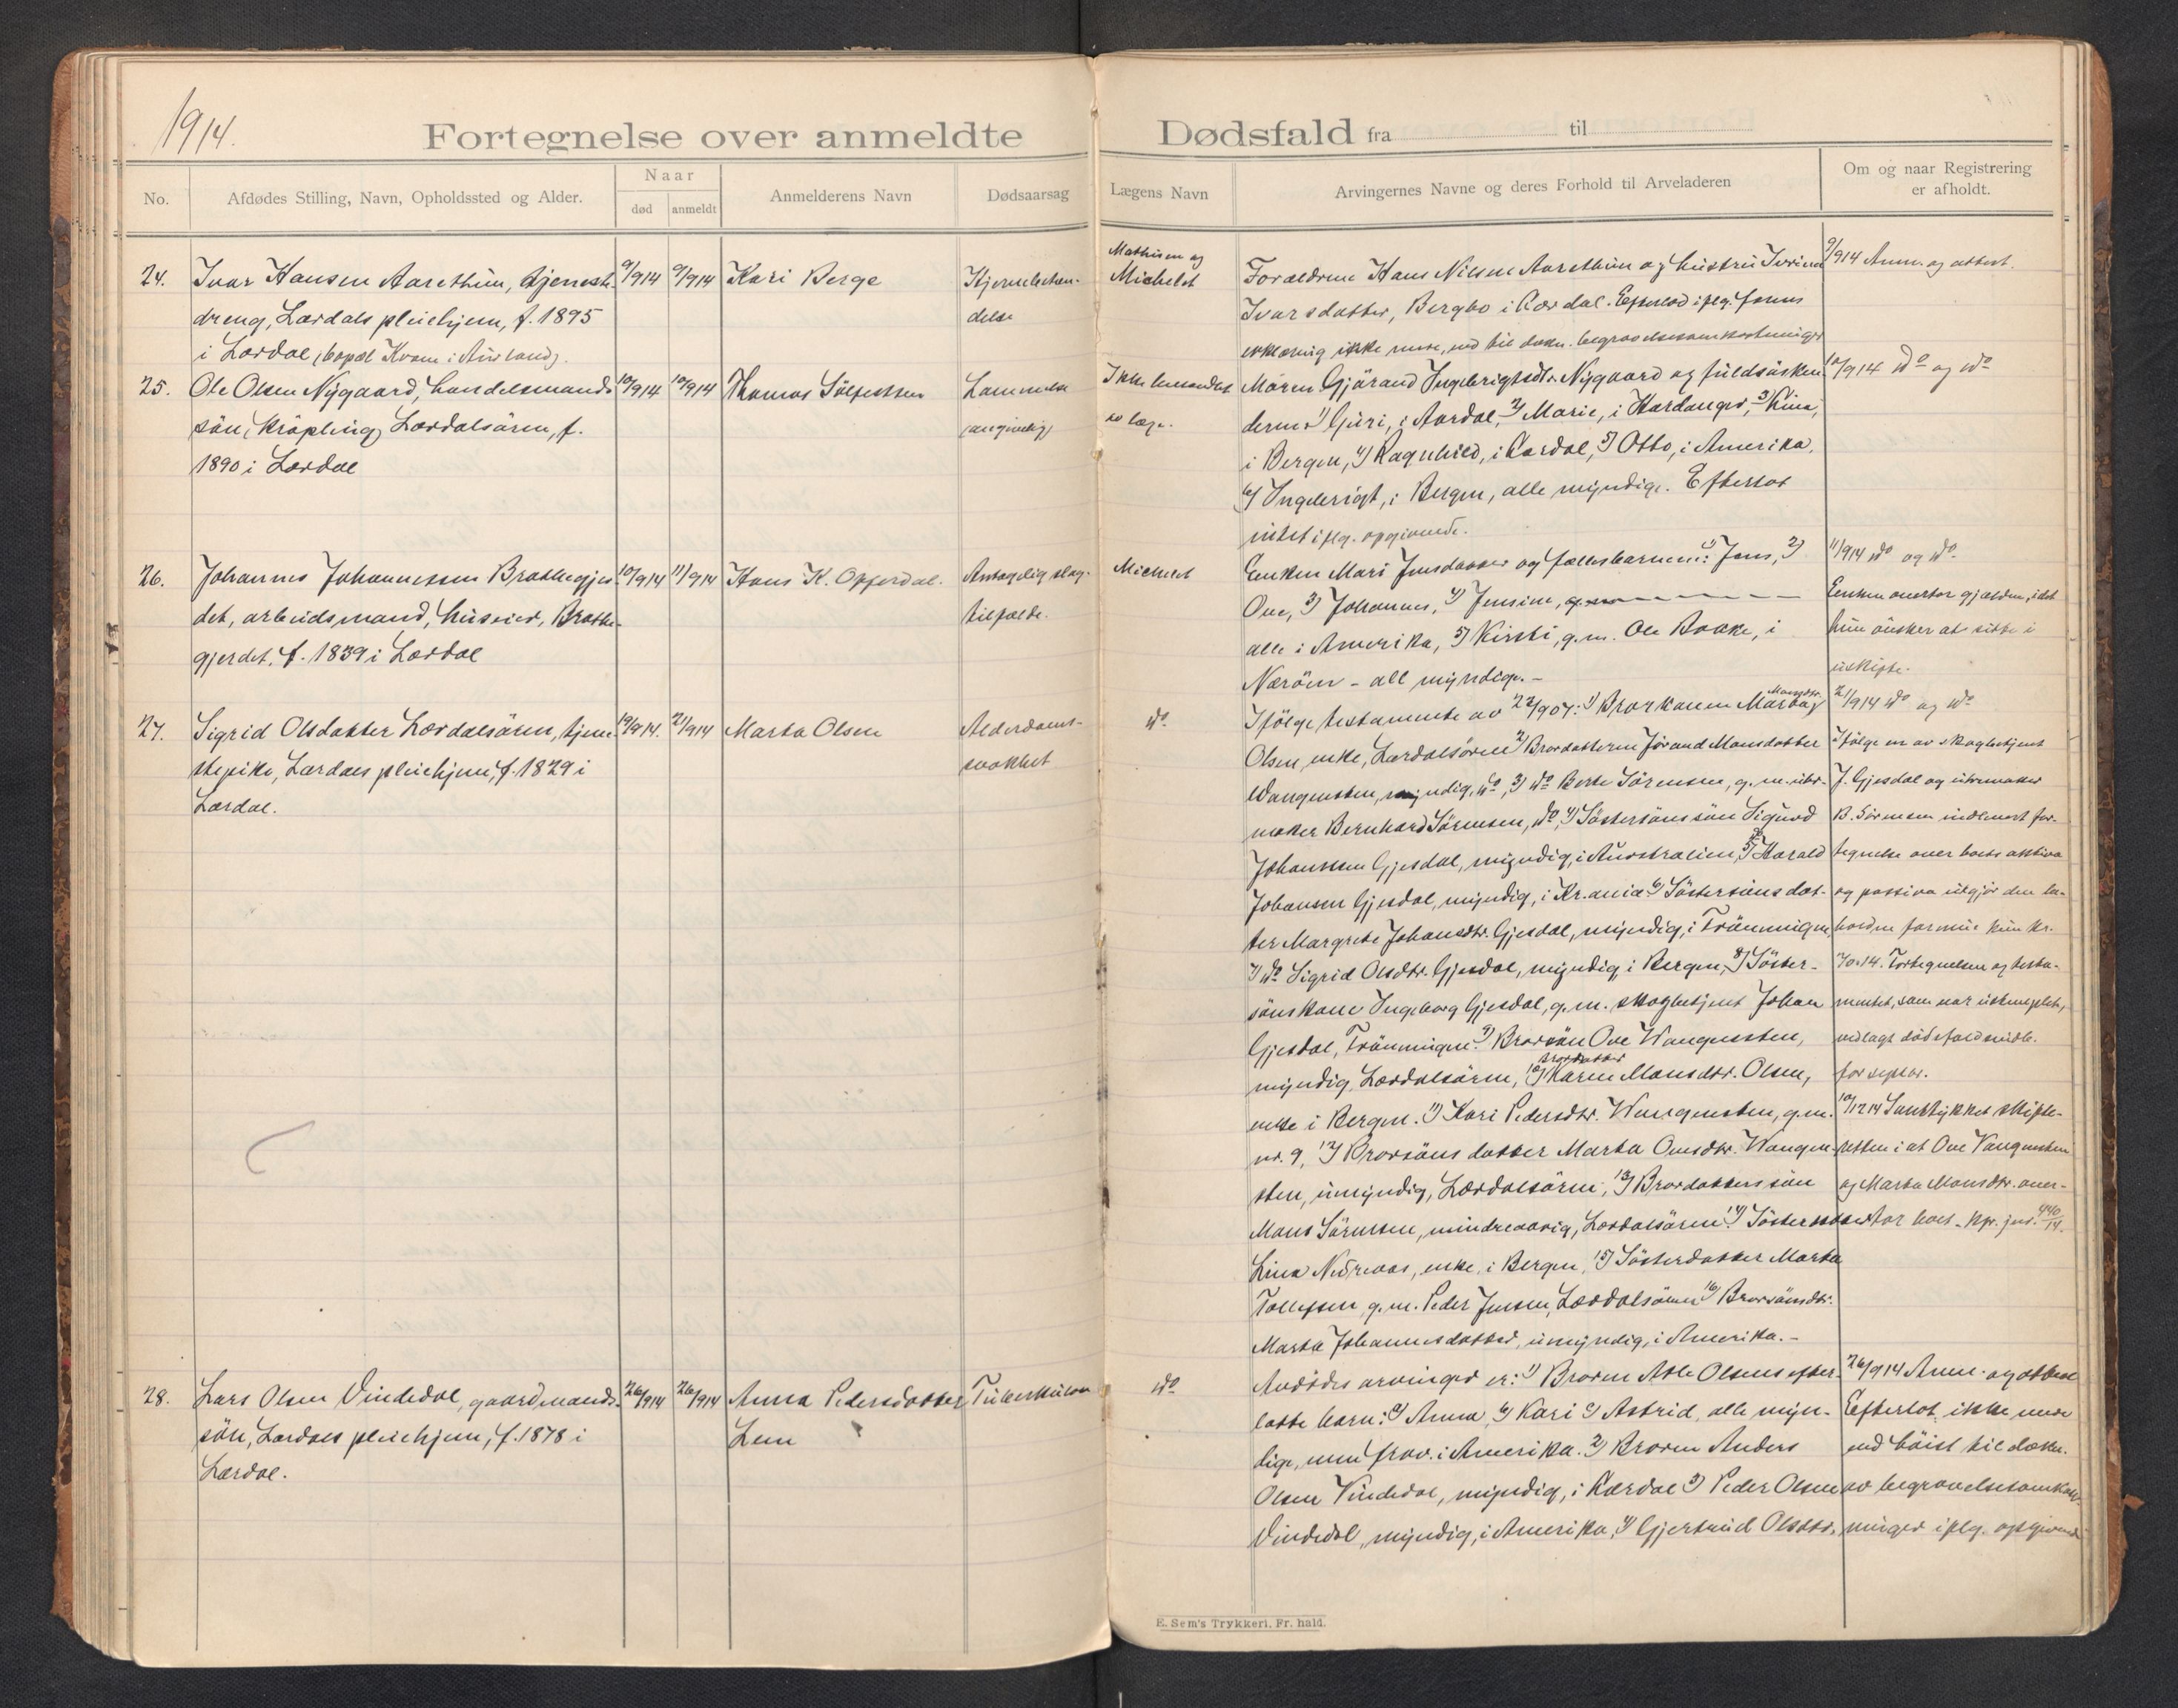 1914.
Fortegnelse over anmeldte Dødsfald fra til
No.
Afdødes Stilling, Navn, Opholdssted og Alder.
Naar
død
anmeldt
Anmelderens Navn
Dødsaarsag
Lægens Navn
Arvingernes Navne og deres Forhold til Arveladeren
Om og naar Registrering
er afholdt.
24.
Ivar Hansen Aarethun, tjeneste-
dreng, Lærdals pleiehjem, f. 1895
i Lærdal (bopæl Kvam i Aurland).
9/914
9/914
Kari Berge
Hjernebeten-
delse
Mathisen og
Michelet
Forældrene Hans Nilsen Aarethun og hustru
Ivarsdatter, Bergbo i Lærdal. Efterlod iflg. farens
erklæring ikke mere, end til dækn. begravelsesomkostninger
9/914 Anm. og attest.
25.
Ole Olsen Nygaard, handelsmands-
søn (krøpling) Lærdalsøren, f.
1890 i Lærdal
10/914
10/914
Thomas
Lammelse
(angivelig)
Ikke benyttet
læge.
Moren Gjørand Ingebrigtsdtr. Nygaard og fuldsøsken-
dene 1) Guri, i Aardal, 2) Marie, i Hardanger, 3) Lina,
i Bergen, 4) Ragnhild, i Lærdal, 5) Otto, i Amerika,
6) Ingebrigt, i Bergen, alle myndige. Efterlot
intet iflg. opgivende.
10/914 do og do
26.
Johannes Johannessen Brattegjer-
det, arbeidsmand, huseier, Bratte-
gjerdet, f. 1839 i Lærdal
10/914
11/914
Hans K. Opperdal.
Antagelig slag-
tilfælde.
Michelet
Enken Mari Jensdatter og fællesbarnene: 1) Jens, 2)
Ove, 3) Johannes, 4) Jensine,
alle i Amerika, 5) Kirsti, g.m. Ole Bakke, i
Nærøen - all myndige. -
11/914 do og do
Enken overtar gjælden, idet
hun ønsker at sitte i
uskifte.
27.
Sigrid Olsdatter Lærdalsøren, tjene-
stepike, Lærdals pleiehjem, f. 1829 i
Lærdal.
19/914.
21/914
Marta Olsen
Alderdoms-
svakhet
do
Ifølge testamente av 22/907: 1) Brorkonen Marta Monsdtr.
Olsen, enke, Lærdalsøren 2) Brordatteren Jørand Monsdatter
Wangensten, myndig, do, 3) do Berte Sørensen, g.m. uhr-
maker Bernhard Sørensen, do, 4) Søstersøns søn Sigurd
Johansen Gjesdal, myndig, i Australien, 5) do Harald
Johansen Gjesdal, myndig, i Kr.ania 6) Søstersøns dat-
ter Margrete Johansdtr. Gjesdal, myndig, i Frønningen,
7) do Sigrid Olsdtr. Gjesdal, myndig, i Bergen, 8) Søster-
sønskone Ingeborg Gjesdal, g.m. skogbetjent Johan
Gjesdal, Frønningen. 9) Brorsøn Ove Wangensten,
myndig, Lærdalsøren, 10) brordatter Karen Monsdtr. Olsen,
enke i Bergen. 11) Kari Pedersdtr. Wangensten, g.m.
nr. 9, 12) Brorsøns datter Marta Ovesdtr. Wangen-
sten, umyndig, Lærdalsøren, 13) Brordatters søn
Mons Sørensen, mindreaarig, Lærdalsøren 14) Søsterdatter
Lina Nedreaas, enke, i Bergen, 15) Søsterdatter Marta
Tollefsen, g.m. Peder Jensen, Lærdalsøren 16) Brorsønsdtr.
Marta Johannesdatter, umyndig, i Amerika. -
21/914 do og do
Ifølge en av skogbetjent
J. Gjesdal og uhrmaker
B. Sørensen indlevert for-
tegnelse over boets aktiva
og passiva utgjør den be-
holdne formue kun kr.
70.14. Fortegnelsen og testa-
mentet, som var ustemplet,
vedlagt dødsfaldsindb.
for septbr.
10/1214 Samtykket skifte-
retten i at Ove Vangensten
og Marta Monsdtr. over-
tar boet. Kp. jnr. 440/14.
28.
Lars Olsen Vindedal, gaardmands-
søn, Lærdals pleiehjem, f. 1878 i
Lærdal.
26/914
26/914
Anna Pedersdatter
Lem
Tuberkulose
do
Avdødes arvinger er: 1) Broren Atle Olsens efter-
latte barn: a) Anna, b) Kari c) Astrid, alle myn-
dige, men frav. i Amerika. 2) Broren Anders
Olsen Vindedal, myndig, i Lærdal 3) Peder Olsen
Vindedal, myndig, i Amerika, 4) Gjertrud Olsdtr.
26/914 Anm. og attest
Efterlot ikke mere
end høist til dækn.
av begravelsesomkost-
ninger iflg. opgivende
E. Sem's Trykkeri, Fr. hald.